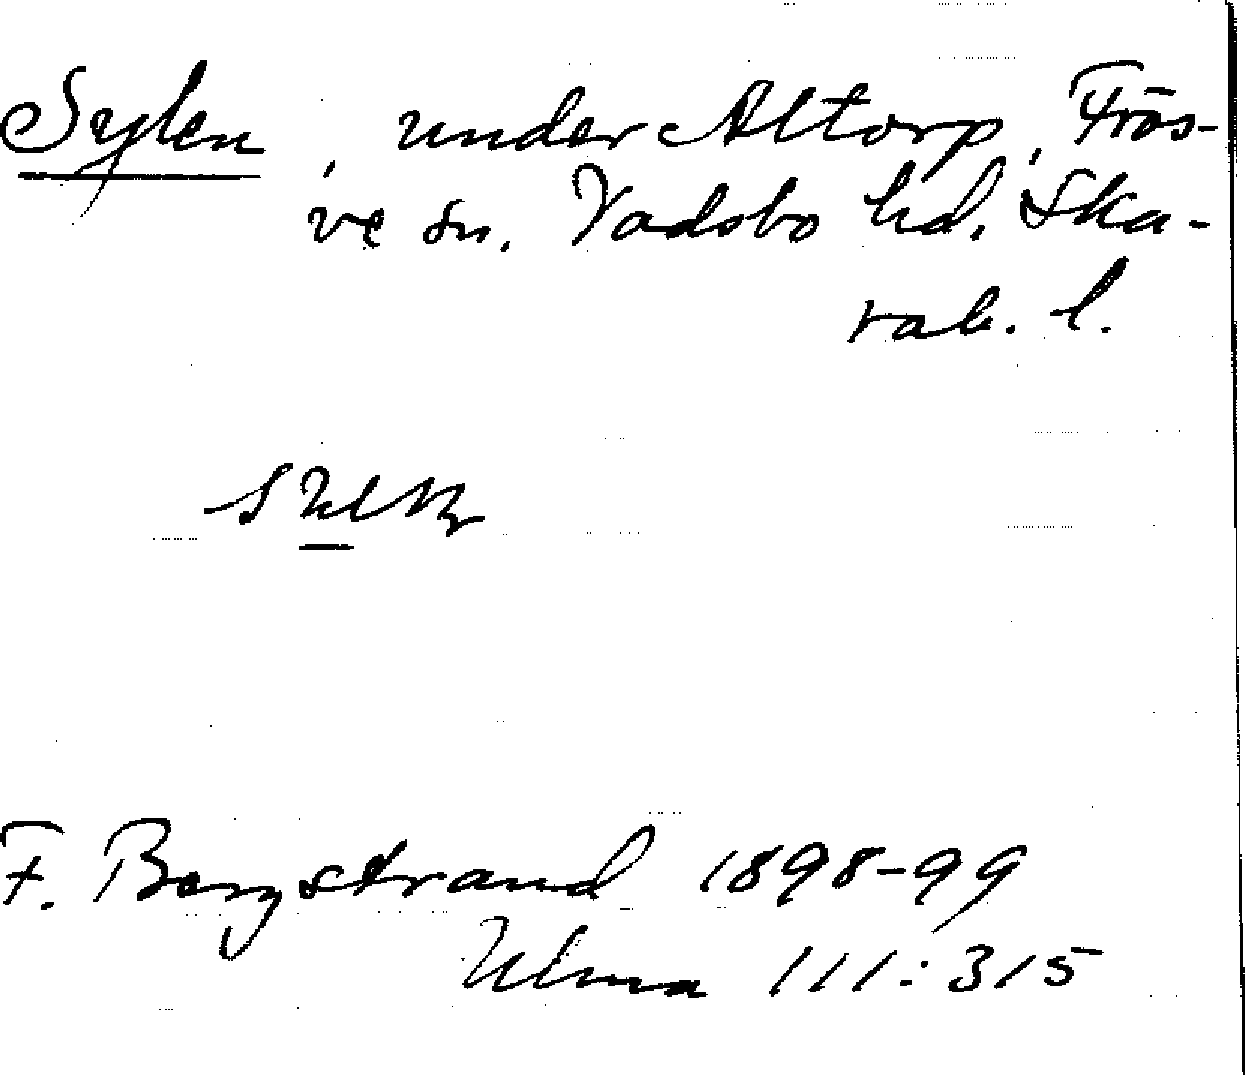 Sylen, under Altorp, Frös-
ve sn. Vadsbo hd. Ska-
rab. l.
F. Bergstrand 1898-99
Ulma 111:315